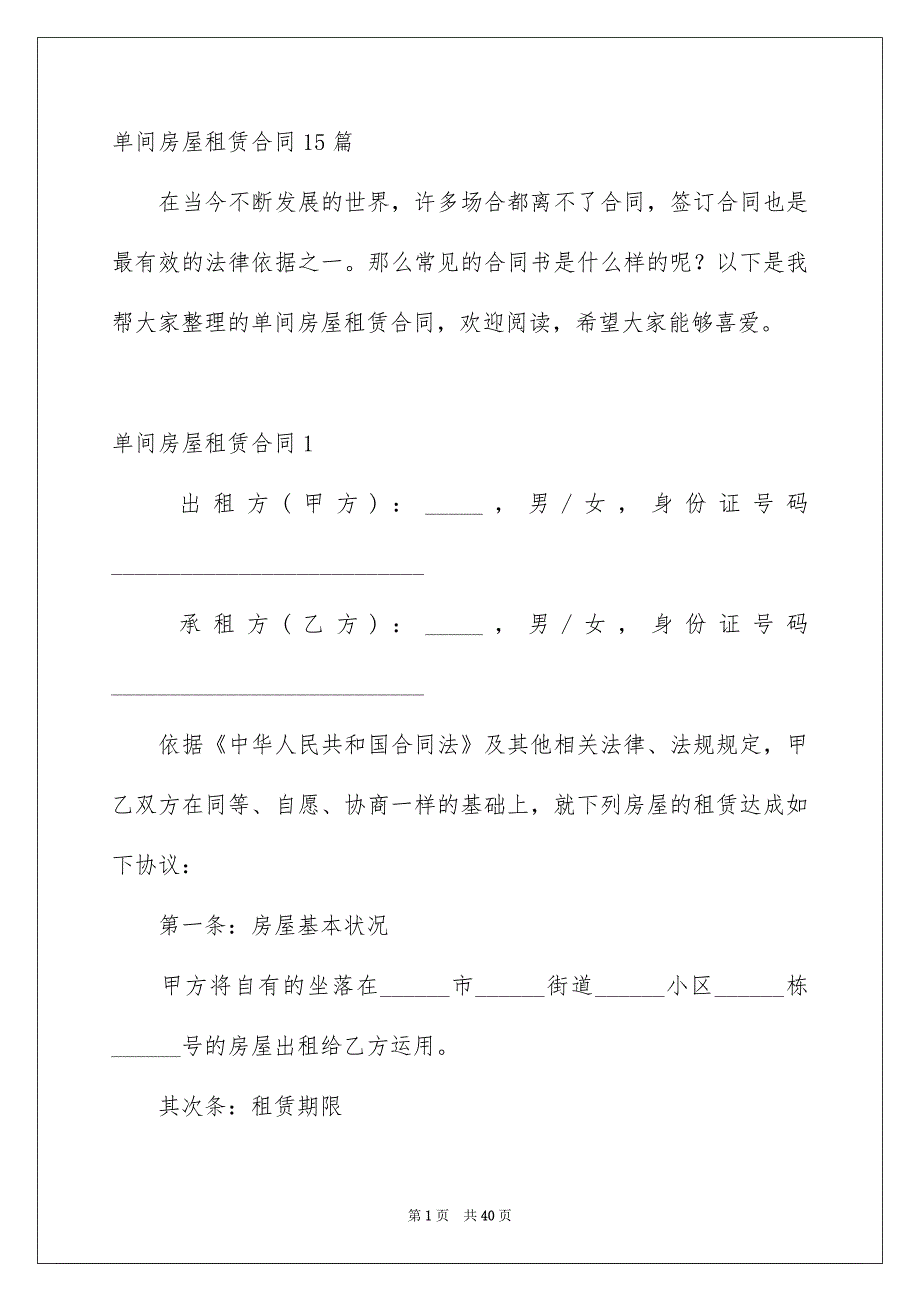 单间房屋租赁合同15篇
在当今不断发展的世界，许多场合都离不了合同，签订合同也是
最有效的法律依据之一。那么常见的合同书是什么样的呢？以下是我
帮大家整理的单间房屋租赁合同，欢迎阅读，希望大家能够喜爱。
单间房屋租赁合同1
出租方(甲方)：_____，男/女，身份证号码
___________________________
承租方(乙方)：_____，男/女，身份证号码
___________________________
依据《中华人民共和国合同法》及其他相关法律、法规规定，甲
乙双方在同等、自愿、协商一样的基础上，就下列房屋的租赁达成如
下协议：
第一条：房屋基本状况
甲方将自有的坐落在______市______街道______小区______栋
______号的房屋出租给乙方运用。
其次条：租赁期限
第1页 共40页